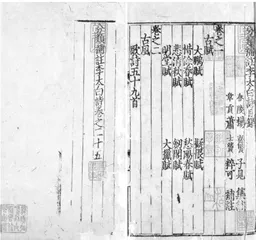 分類補註李太白詩目錄
舂陵 楊 齊賢 子見 集註
章貢 蕭 士贇 粹可 補註
卷之一
古賦
大鵬賦 擬恨賦
惜餘春賦 愁陽春賦
悲清秋賦 劍閣賦
明堂賦 大獵賦
卷之二
古風
歌詩五十九首
分類補註李太白詩卷之二十五